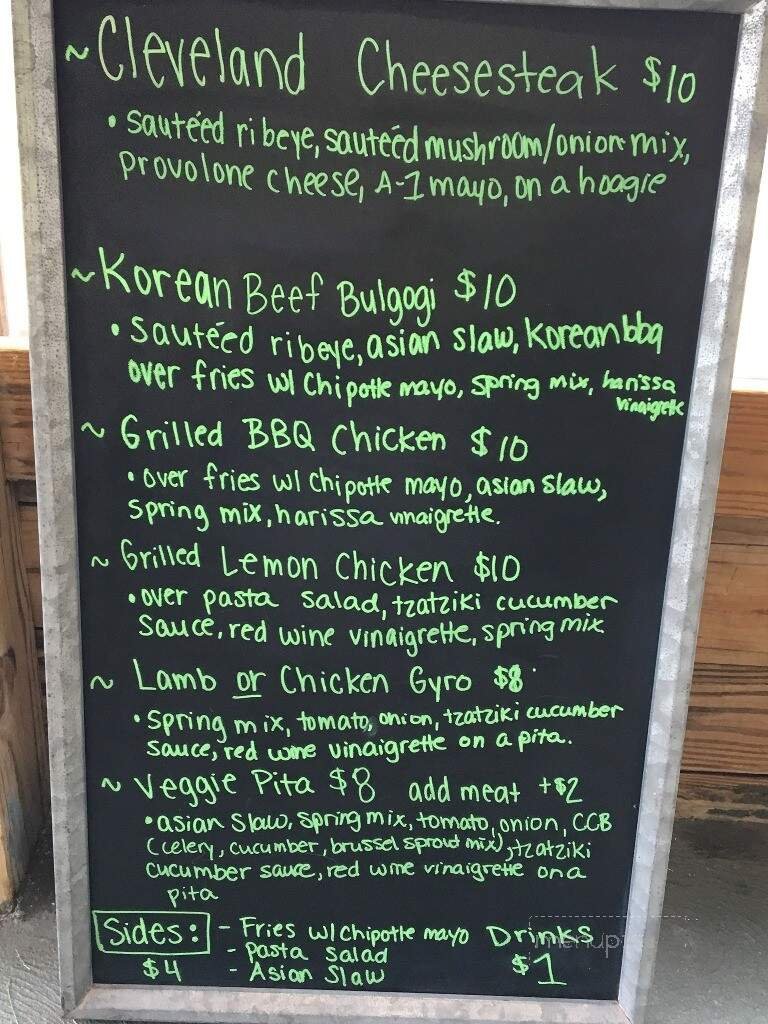 ~Cleveland Cheesesteak $10
• sautéed ribeye, sautéed mushroom/onion mix,
provolone cheese, A-1 mayo, on a hoagie
~Korean Beef Bulgogi $10
• sautéed ribeye, asian slaw, Korean bbq
over fries w/ chipotle mayo, spring mix, harissa
vinaigrette
~ Grilled BBQ Chicken $10
• over fries w/ chipotle mayo, asian slaw,
spring mix, harissa vinaigrette.
~ Grilled Lemon Chicken $10
• over pasta salad, tzatziki cucumber
sauce, red wine vinaigrette, spring mix
~ Lamb or Chicken Gyro $8
• spring mix, tomato, onion, tzatziki cucumber
sauce, red wine vinaigrette on a pita.
~ Veggie Pita $8 add meat +$2
• asian slaw, spring mix, tomato, onion, CCB
(celery, cucumber, brussel sprout mix), tzatziki
cucumber sauce, red wine vinaigrette on a
pita
Sides: - Fries w/ chipotle mayo Drinks
- Pasta Salad
$4 - Asian Slaw $1